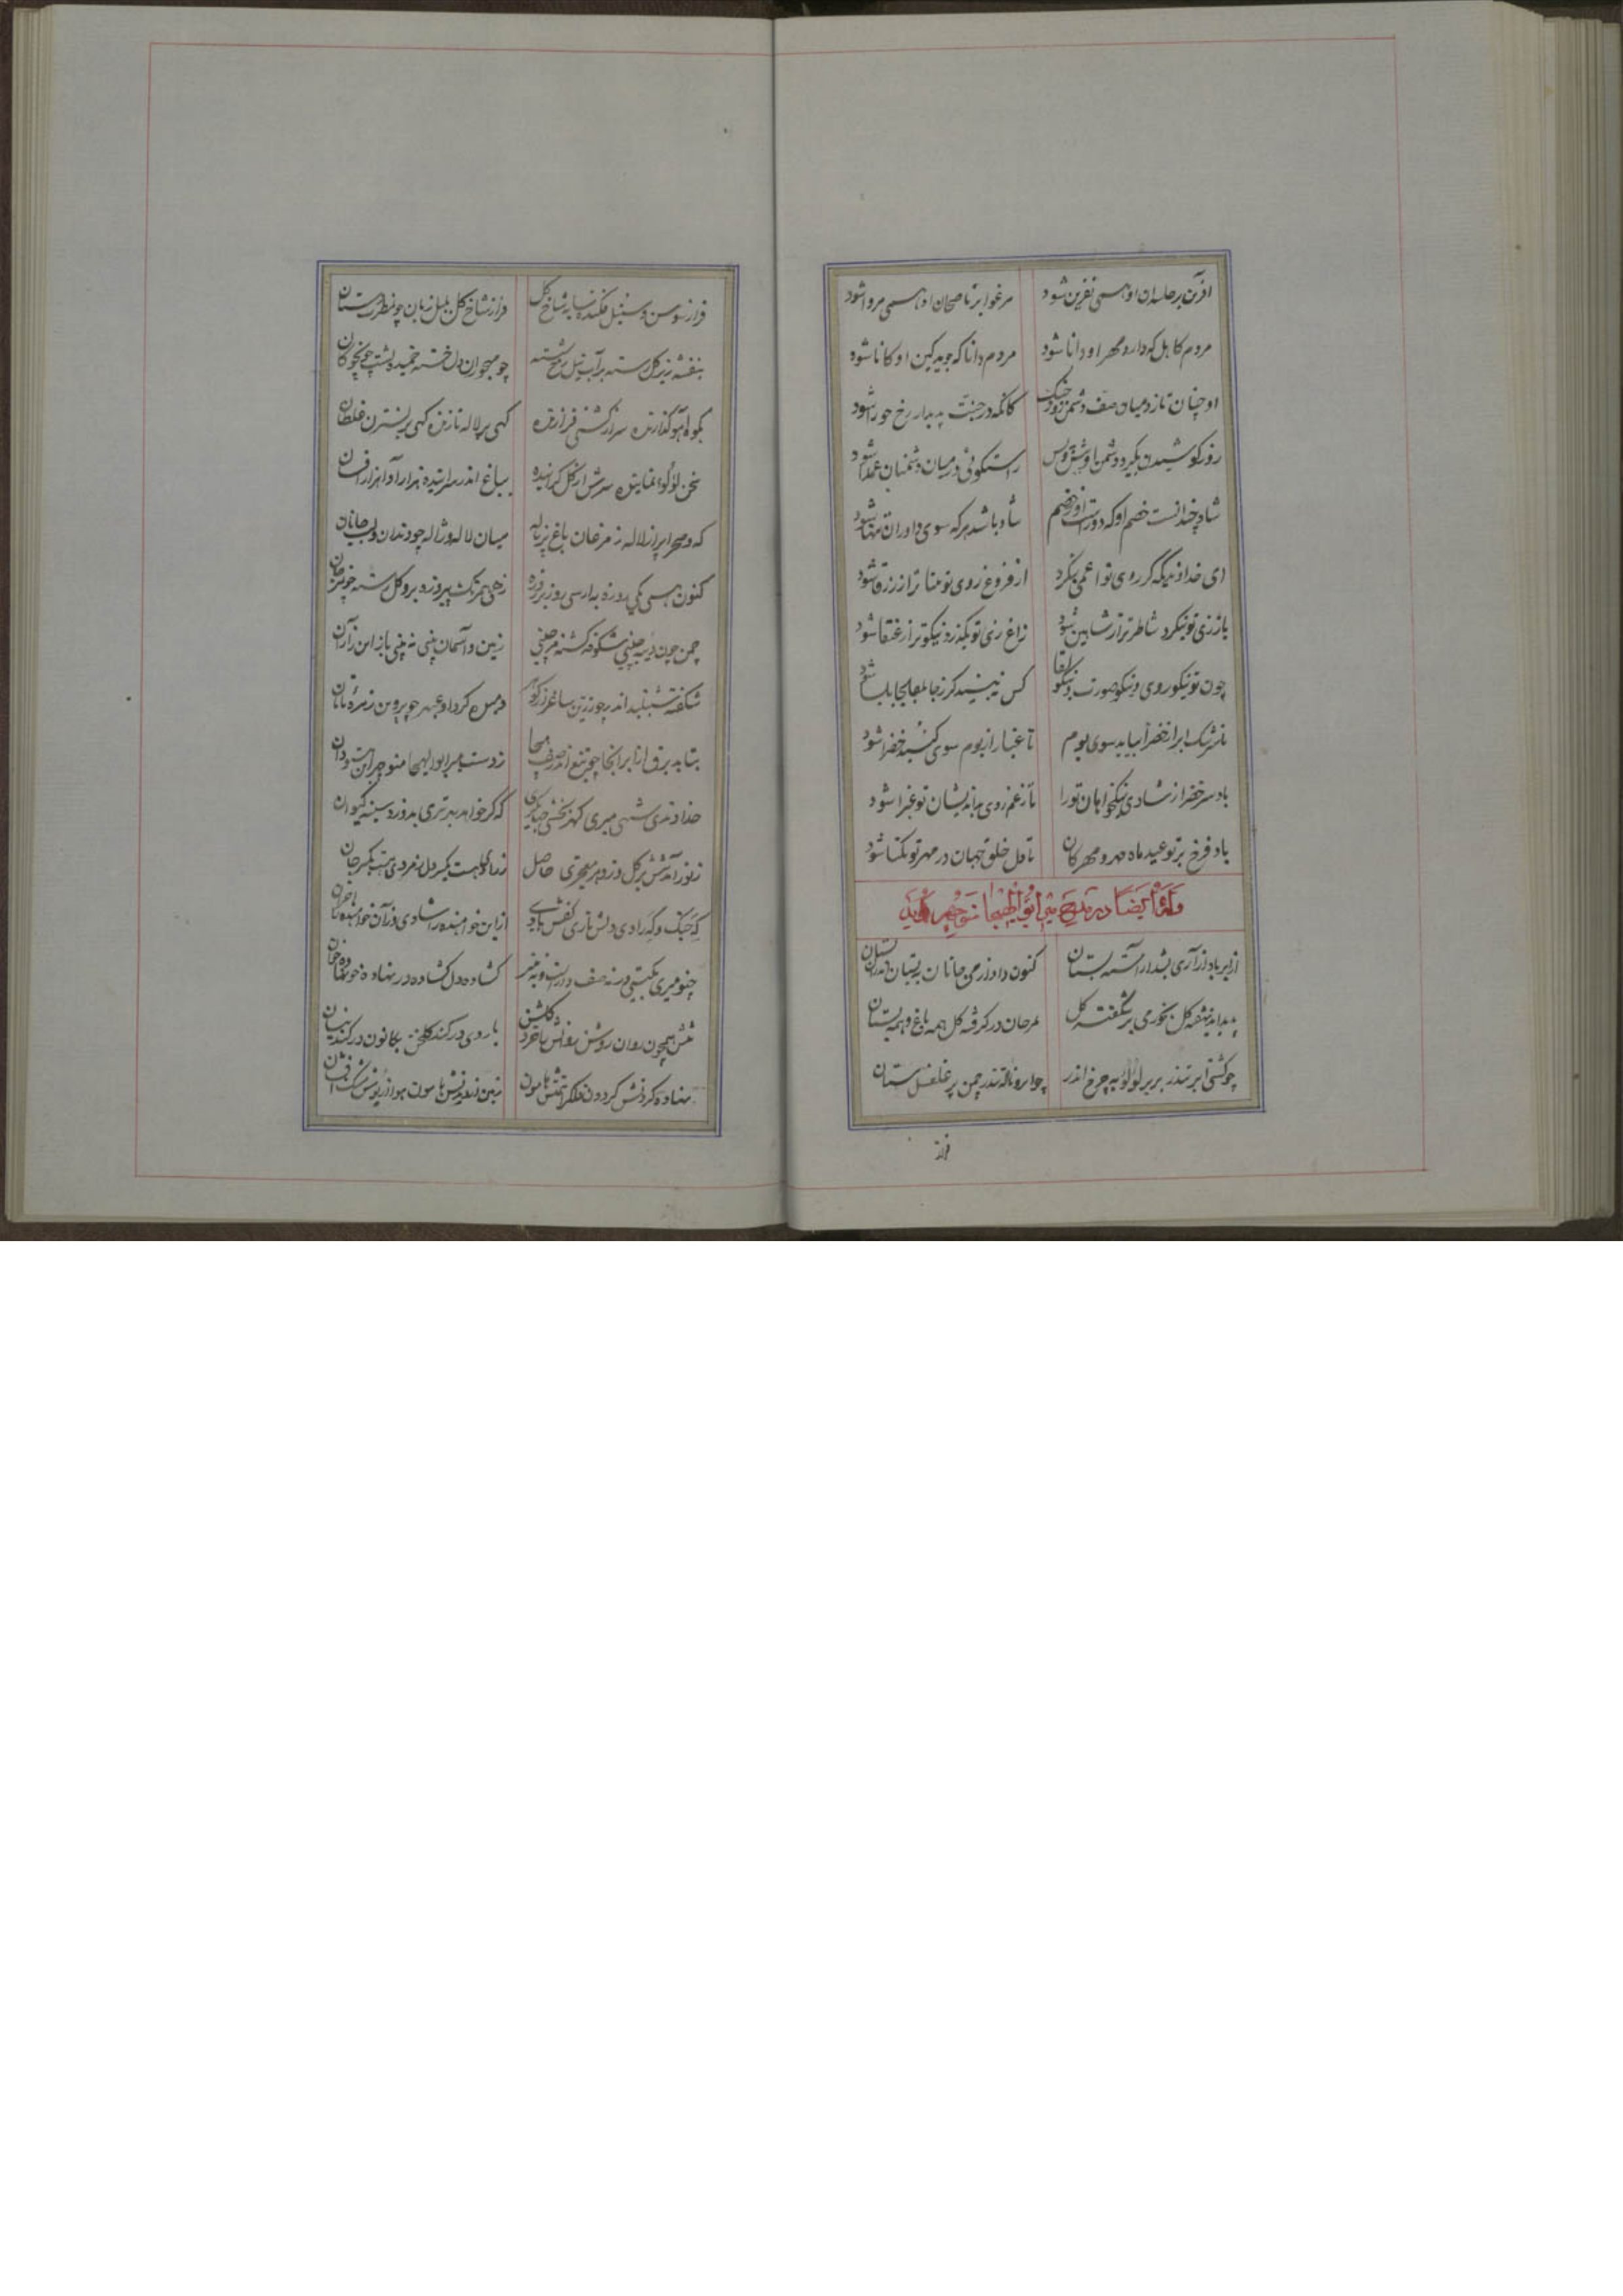 آفرین بر حاسدان او همی نفرین شود مرغوا بر ناصحان او همی مروا شود
مردم کاهل که دارد مهر او دانا شود مردم دانا که جوید کین او کانا شود
او چنان تازد میان صف دشمن روز جنگ کانگه در جنت پدیدار رخ حورا شود
روز کوشیدن بگیرد دشمن او راستگوئی در میان دشمنان عمدا شود
شاد چندانست خصم او که دور است از شاد باشد هر که سوی داوران تنها شود
ای خداوندیکه گر روی تو اعمی بنگرد از فروغ روی تو بیناتر از زرقا شود
باز زی تو بنگرد شاطرتر از شاهین شود زاغ زی تو بگذرد نیکوتر از عنقا شود
چون تو نیکو روی و نیکو صورت و نیکو لقا کس نبیند گر ز جابلقا بجابلسا شود
تا سرشک ابر از خضرا بیاید سوی بوم تا غبار از بوم سوی گنبد خضرا شود
باد سر خضرا از شادی نیکخواهان تو را تا ز غم روی بداندیشان تو غبرا شود
باد فرخ بر تو عید ماه مهر و مهرگان تا دل خلق جهان در مهر تو یکتا شود
وله ایضا در مدح میر ابوالهیجا منوچهر گوید
از ابر باد آزاری بشد آراسته بستان کنون داد از می جانان به بستان
پدید آمد بنفشه گل بخوری بر شگفته گل بمرجان در گرفته گل همه باغ و همه بستان
چو کشتی ابر تندر بر پر لؤلؤ به چرخ اندر چمن پر غلغل مستان
فراز
فراز سوسن و سنبل فکنده سایه شاخ گل فراز شاخ گل بلبل زنان چو مطرب دستان
بنفشه زیر گل رسته بر آب نیل رخ شسته چو مهجوران دل خسته خمیده پشت چون چوگان
بکوه آهو گذارنده سر از کشی فرازنده گهی بر لاله تازنده گهی بر نسترن غلطان
سخن لؤلؤ نماینده سرش از گل گراینده بباغ اندر سراینده هزار آوا هزار افسان
که و صحرا پر از لاله ز مرغان باغ پر ناله میان لاله در ژاله چو دندان و لب جانان
کنون همی یکی روزه به از سی روز زمین همرنگ پیروزه برو گل رسته چون مرجان
چمن چون دیبه چینی شکوفه گشته پرچینی زمین و آسمان بینی نه بینی باز این از آن
شکفته شنبلید اندر چو زرین ساغر از گوهر دمیده گرد او عبهر چو پروین ز مه تابان
بتابد برق از ابر آنجا چو تیغ اندر صف هیجا ز دست میر ابوالهیجا منوچهر ابن وهسودان
خداوندی شهی میری گهر بخشی جهانگیری که گر خواهد بدرد تیری بدوزد سینه کیوان
که جنگ و گه رادی دلش ناری کفش بادی از این خواهنده را شادی وز آن خواهنده را خذلان
چنو میری بگیتی در نه صف دار است و نه منبر گشاده دل گشاده در نهاده خو نهاده خوان
تنش همچون روان روشن روانش با خرد گلشن باردی در کند گلخن بکانون در کند نیسان
نهاده گردش گردون